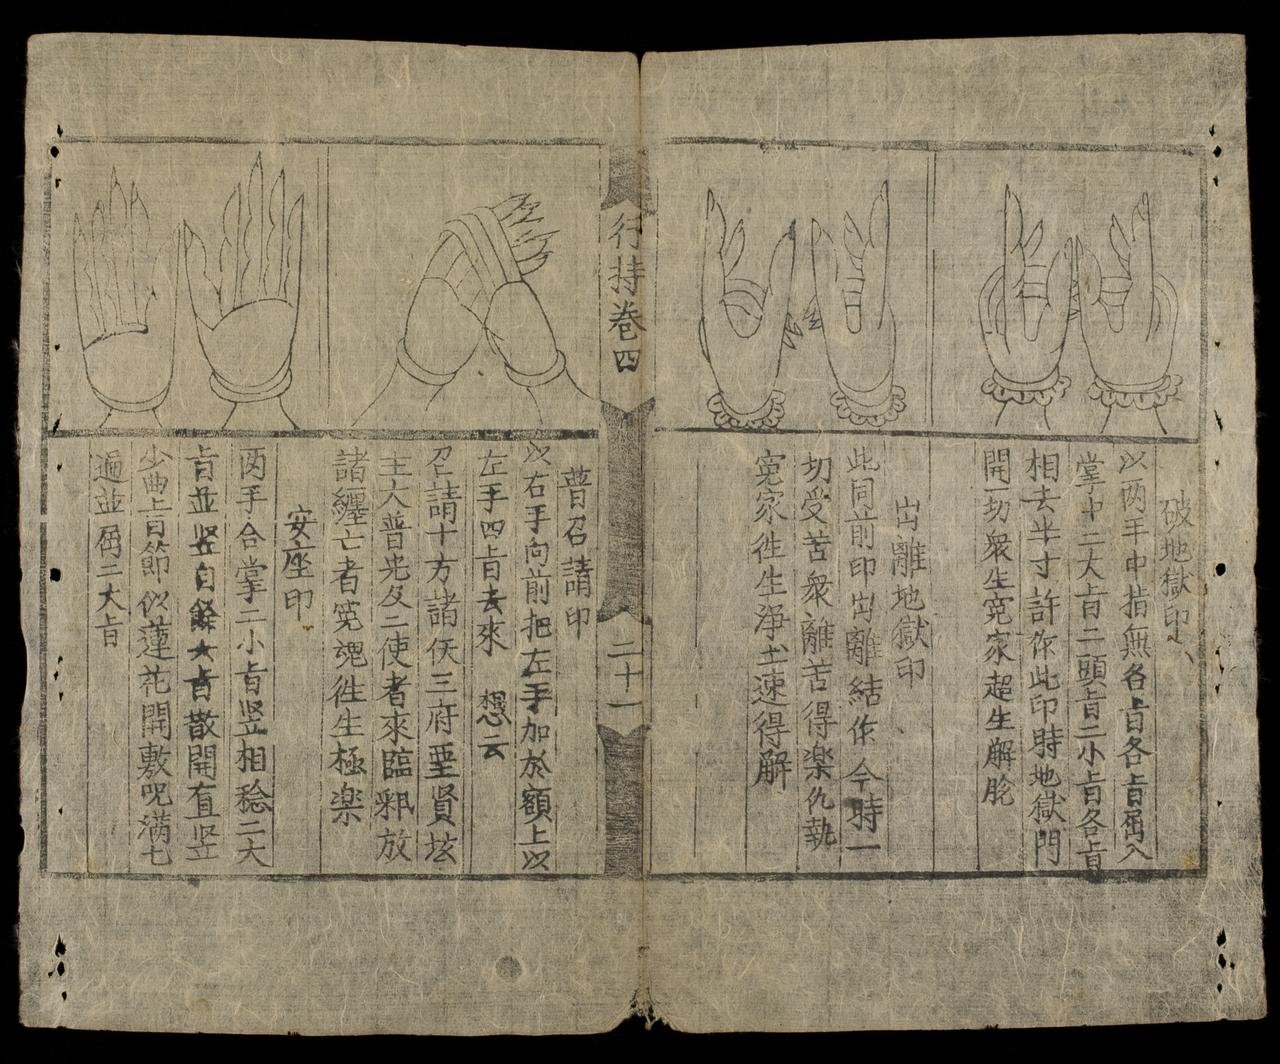 破地獄印
以両手中指無名㫖各㫖屈入
掌中二大㫖二頭㫖二小㫖各㫖
相去半寸許作此印時地獄門
開一切衆生寃家超生解脫
出離地獄印
此同前印出離結作今時一
切受苦衆離苦得楽仇執
寃家徃生淨土速得解
行持巻四
二十一
普召請印
以右手向前把左手加於額上以
左手四㫖去來 想云
召請十方諸天三府聖賢
主大普光及二使者來臨釈放
諸纒亡者寃魂徃生極楽
安座印
両手合掌二小㫖竖相稔二大
㫖並竖自餘㫖散開直竖
少曲上㫖節似蓮花開敷呪满七
遍並屈二大㫖